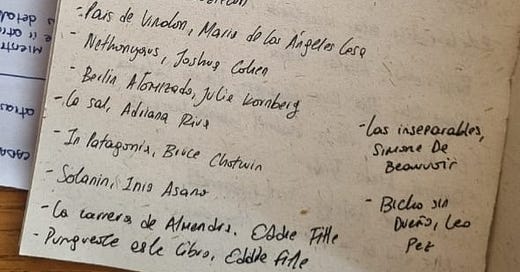 - País de Vinalon, María de los Ángeles
- Joshua Cohen
- Berlín Atomizado, Julia Kornberg
- La sal, Adriana Riva
- In Patagonia, Bruce Chatwin
- Solanin, Inio Asano
- La carrera de Almendra, Eddie Fitte
este libro, Eddie Fitte
- Las inseparables,
Simone De
Beauvoir
- Bicho sin
Dueño, Leo
atras
CADA